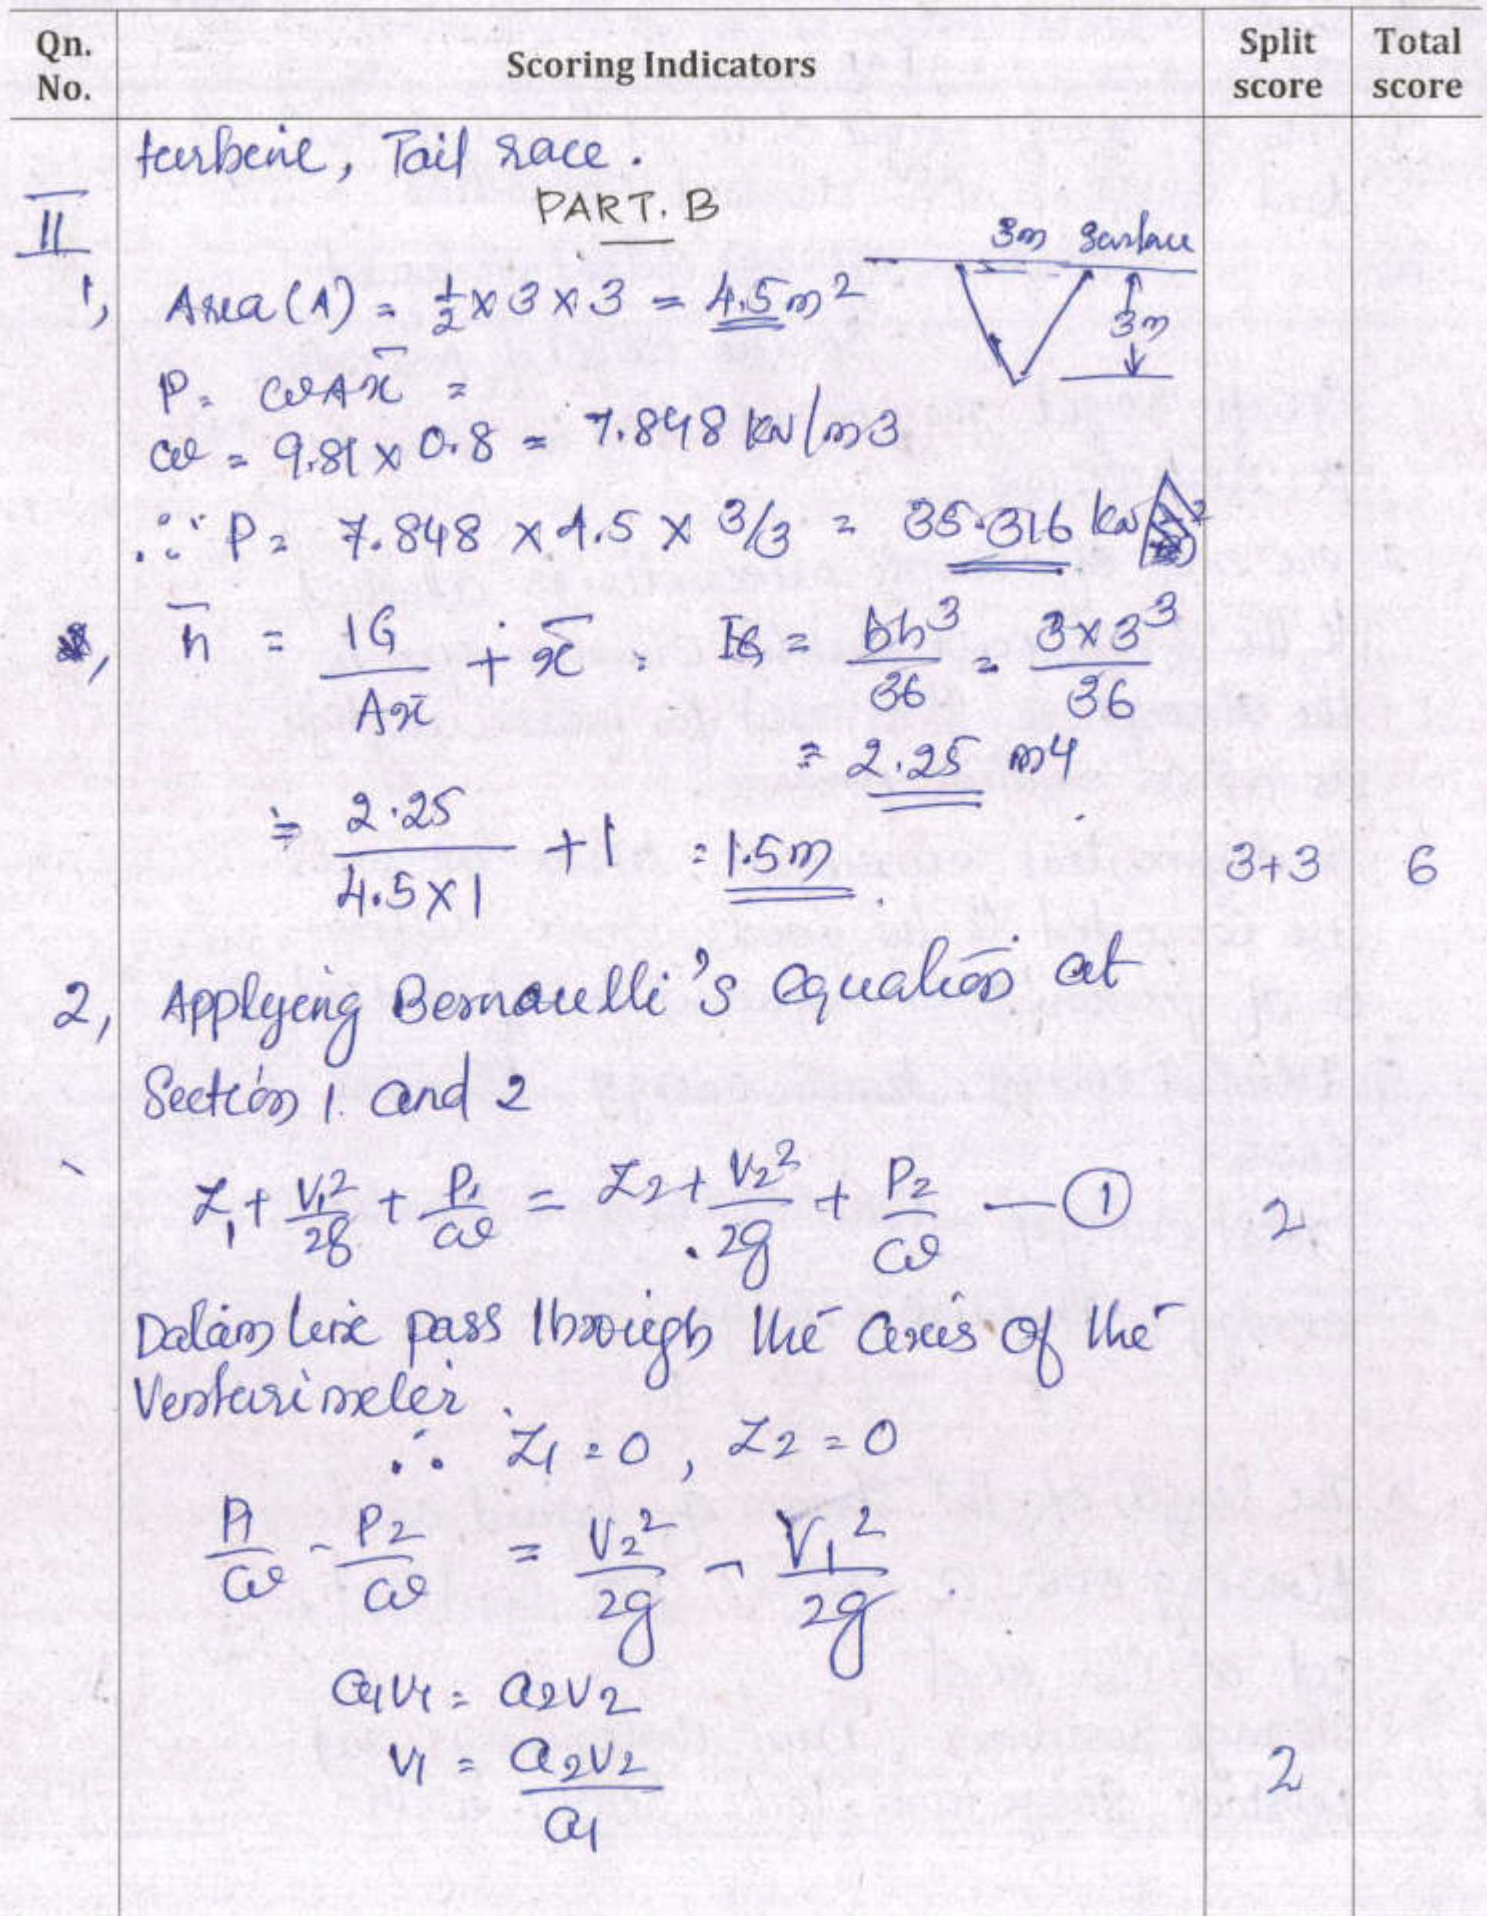 Qn. No. Scoring Indicators Split score Total score
turbine, Tail race.
PART. B
II
3m Surface
1, Area (A) = 1/2 × 3 × 3 = 4.5 m²
3m
P = ωAx̄ =
ω = 9.81 × 0.8 = 7.848 kN/m3
∴ P = 7.848 × 4.5 × 3/3 = 35.316 kN
h̄ = IG/Ax̄ + x̄ : IG = bh³/36 = 3×3³/36
= 2.25 m4
= 2.25/4.5×1 + 1 = 1.5m. 3+3 6
2, Applying Bernoulli's equation at
Section 1. and 2
Z₁ + V₁²/2g + P₁/ω = Z₂ + V₂²/2g + P₂/ω — ① 2
Datum line pass through the axis of the
Venturimeter.
∴ Z1 = 0, Z2 = 0
P1/ω - P2/ω = V₂²/2g - V₁²/2g
a1v1 = a2v2
v1 = a2v2/a1 2